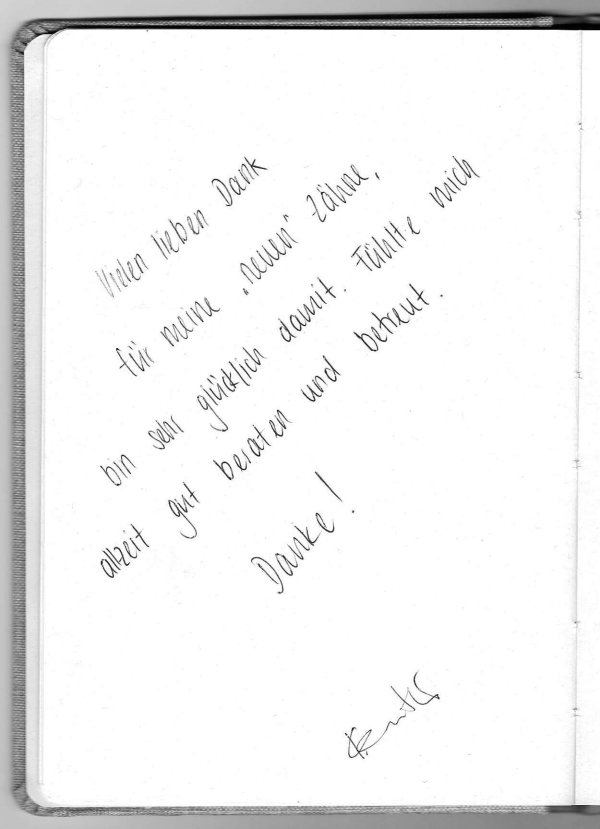 Vielen lieben Dank
für meine „neuen" Zähne,
bin sehr glücklich damit. Fühlte mich
allzeit gut beraten und betreut.
Danke!